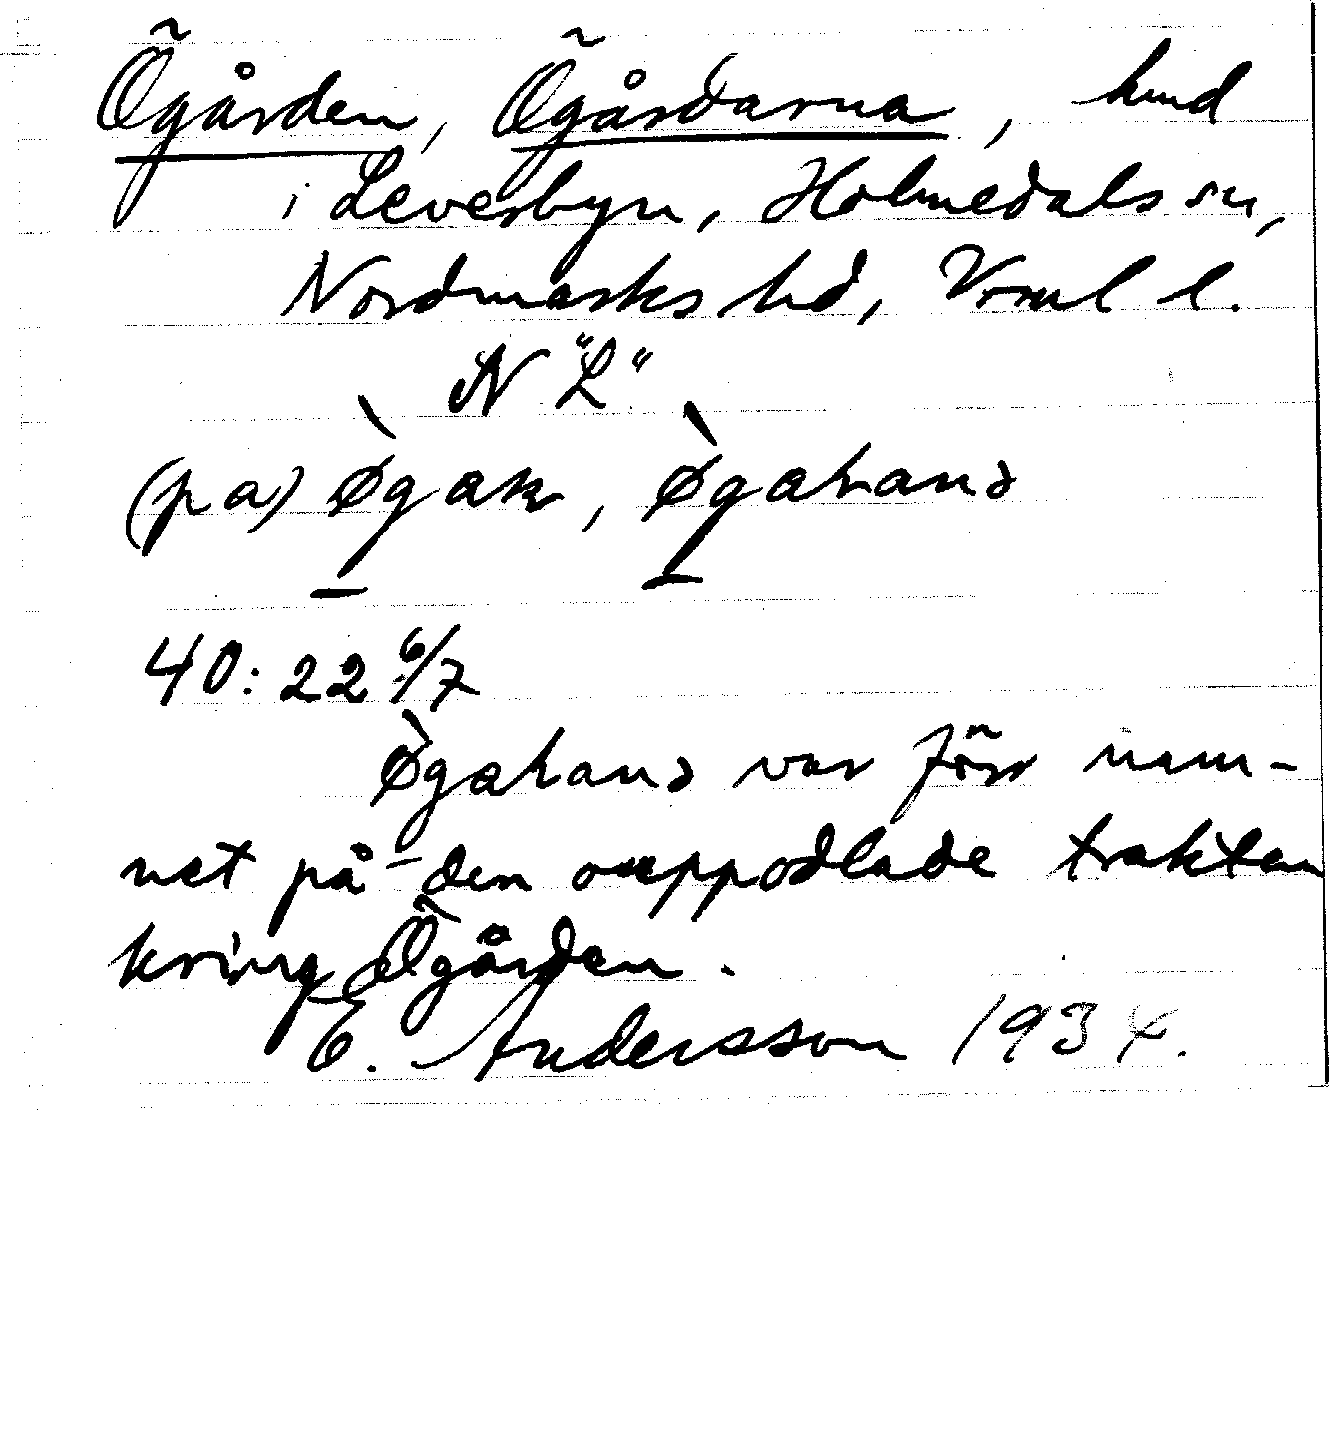 Ögården, Ögårdarna, hmd
i Leverbyn, Holmedals sn,
Nordmarks hd, Vrml l.
N "L"
(pa) Øgak, Øgahans
40:22 6/7
Øgahans var förr nam-
net på den ouppodlade trakten
kring Ögården.
E. Andersson 1934.